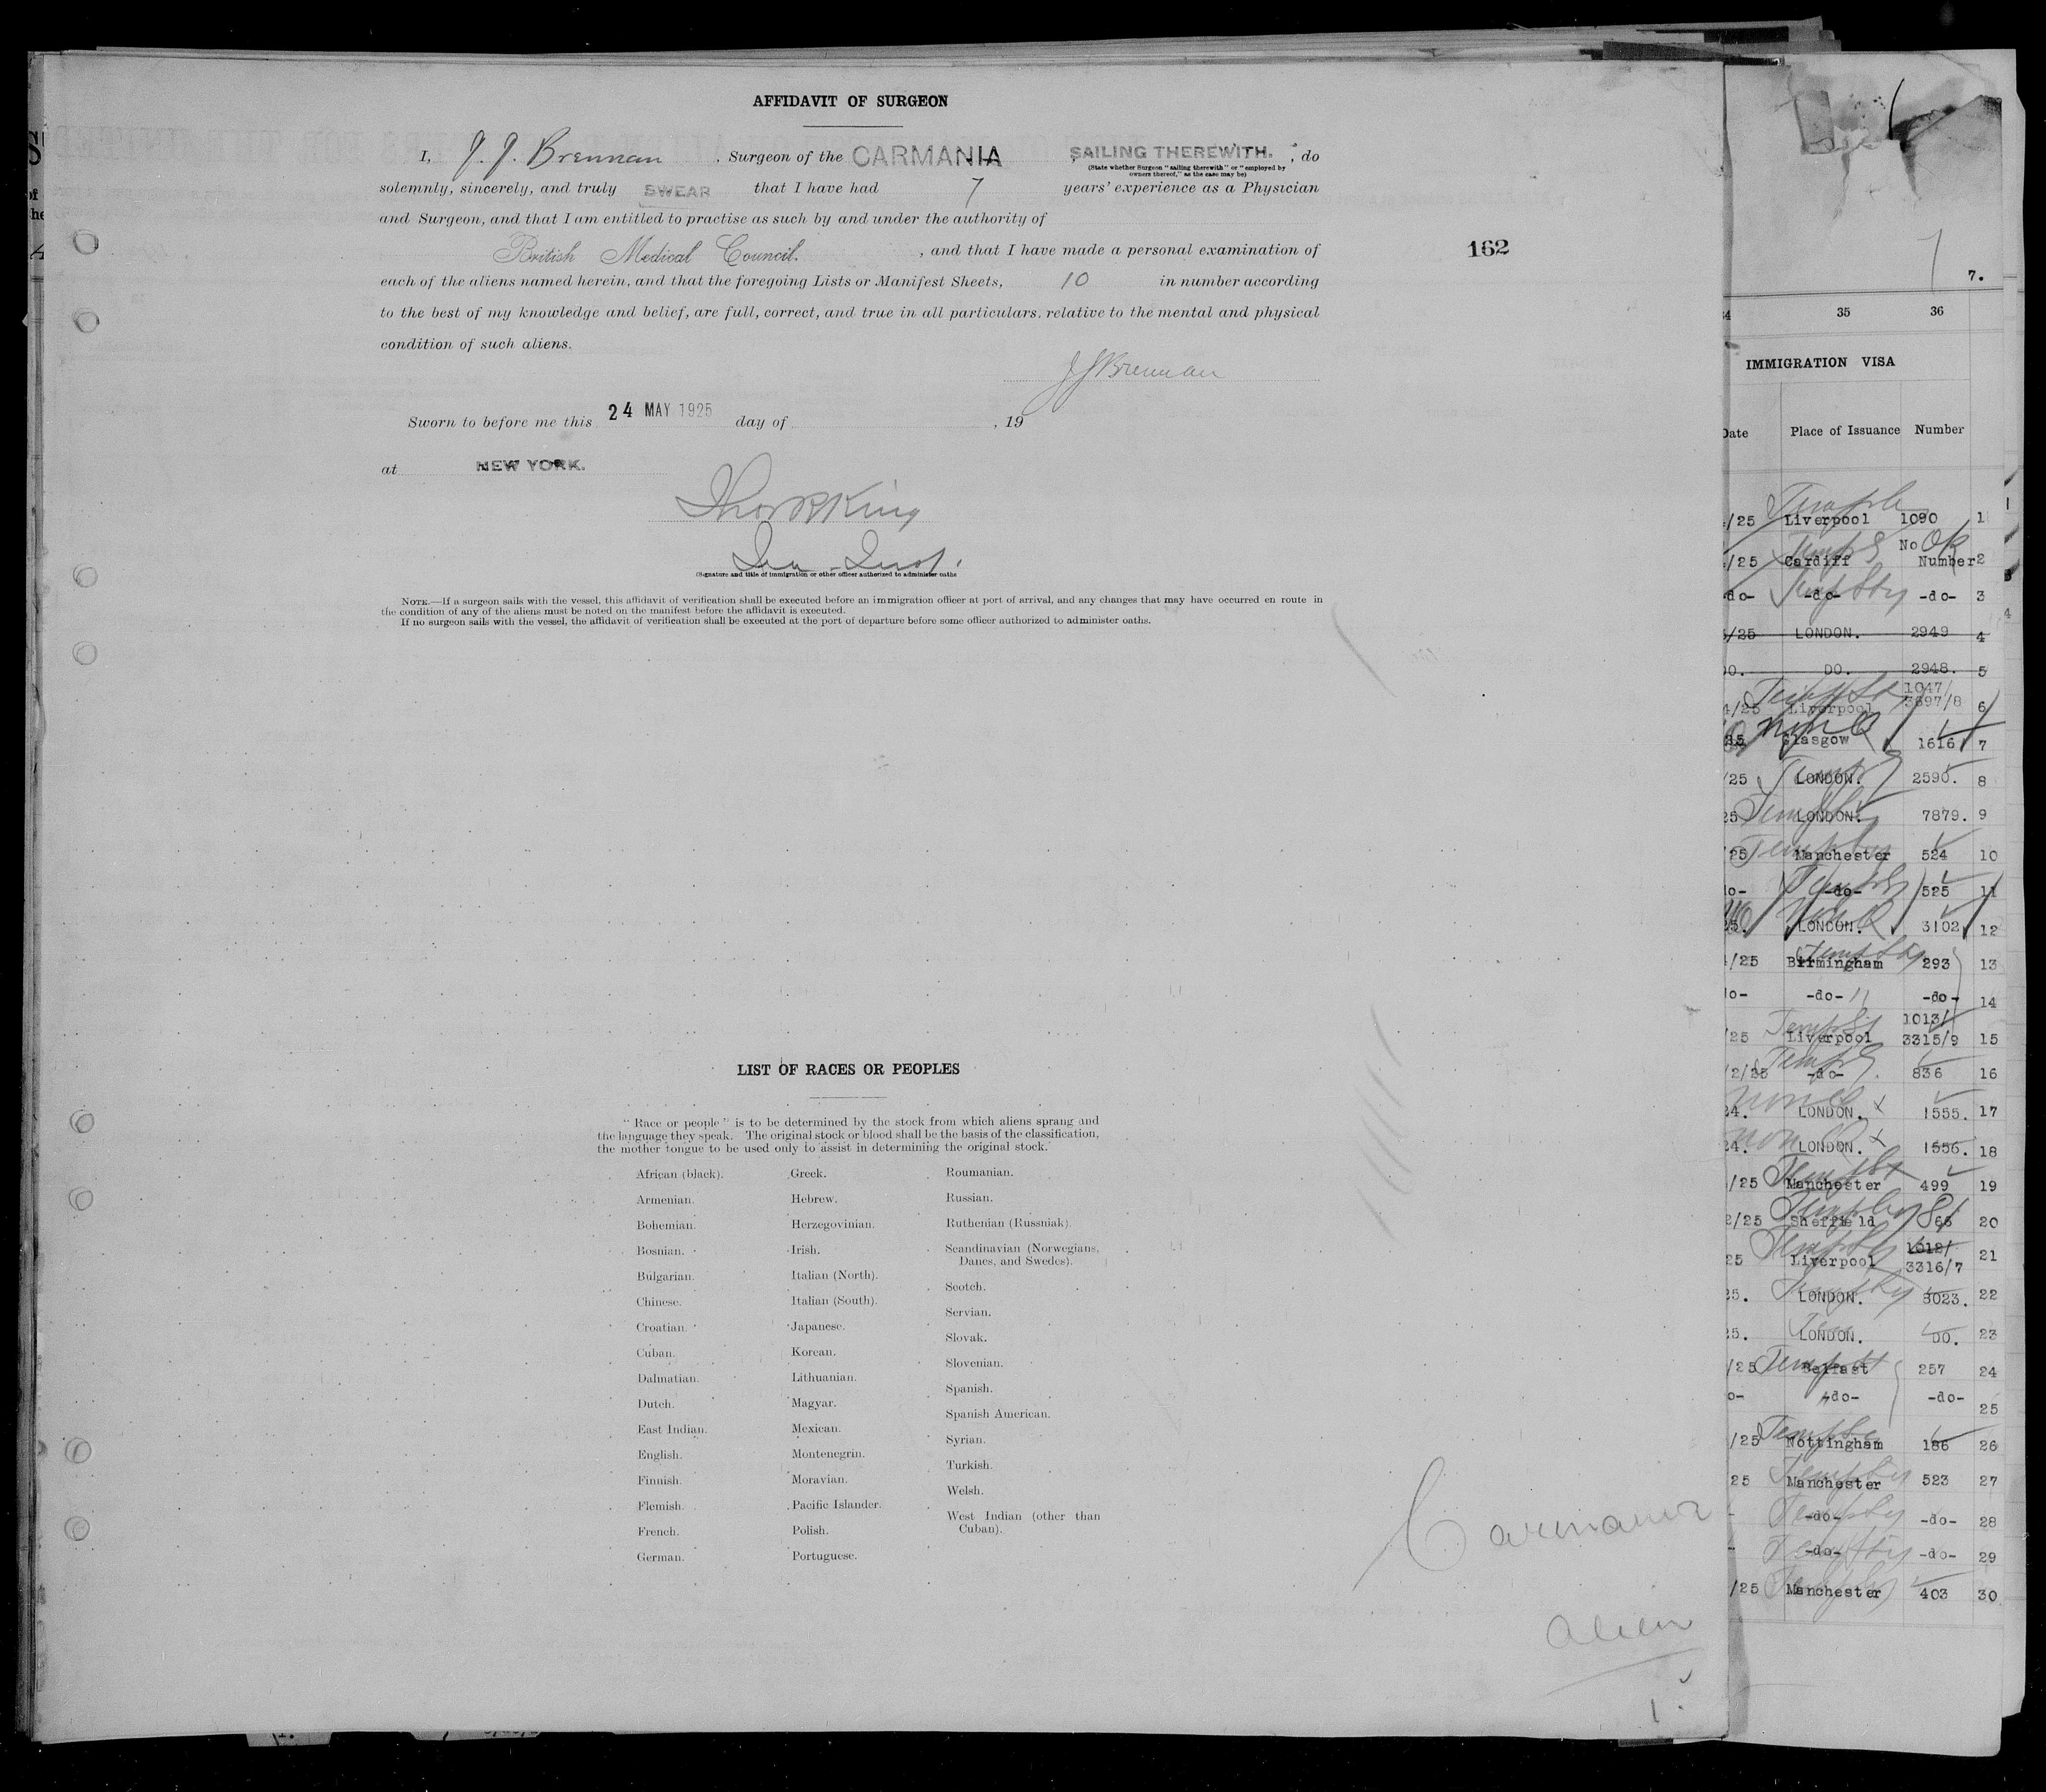 AFFIDAVIT OF SURGEON
I, J. J. Brennan, Surgeon of the CARMANIA, SAILING THEREWITH., do
(State whether Surgeon "sailing therewith" or "employed by
owners thereof," as the case may be)
solemnly, sincerely, and truly SWEAR that I have had 7 years' experience as a Physician
and Surgeon, and that I am entitled to practise as such by and under the authority of
British Medical Council., and that I have made a personal examination of
162
each of the aliens named herein, and that the foregoing Lists or Manifest Sheets, 10 in number according
to the best of my knowledge and belief, are full, correct, and true in all particulars, relative to the mental and physical
condition of such aliens.
J J Brennan
Sworn to before me this 24 MAY 1925 day of , 19
at NEW YORK.
King
(Signature and title of immigration or other officer authorized to administer oaths
NOTE.—If a surgeon sails with the vessel, this affidavit of verification shall be executed before an immigration officer at port of arrival, and any changes that may have occurred en route in
the condition of any of the aliens must be noted on the manifest before the affidavit is executed.
If no surgeon sails with the vessel, the affidavit of verification shall be executed at the port of departure before some officer authorized to administer oaths.
LIST OF RACES OR PEOPLES
"Race or people" is to be determined by the stock from which aliens sprang and
the language they speak. The original stock or blood shall be the basis of the classification,
the mother tongue to be used only to assist in determining the original stock.
African (black).
Armenian.
Bohemian.
Bosnian.
Bulgarian.
Chinese.
Croatian.
Cuban.
Dalmatian.
Dutch.
East Indian.
English.
Finnish.
Flemish.
French.
German.
Greek.
Hebrew.
Herzegovinian.
Irish.
Italian (North).
Italian (South).
Japanese.
Korean.
Lithuanian.
Magyar.
Mexican.
Montenegrin.
Moravian.
Pacific Islander.
Polish.
Portuguese.
Roumanian.
Russian.
Ruthenian (Russniak).
Scandinavian (Norwegians,
Danes, and Swedes).
Scotch.
Servian.
Slovak.
Slovenian.
Spanish.
Spanish American.
Syrian.
Turkish.
Welsh.
West Indian (other than
Cuban).
Carmania
Alien
1
7 7.
35 36
IMMIGRATION VISA
Date Place of Issuance Number
/25 Liverpool 1090 1
/25 Cardiff No Number OK 2
-do- -do- -do- 3
/25 LONDON. 2949 4
DO. DO. 2948. 5
4/25 Liverpool 1047/ 3697/8 6
25 Glasgow 1616 7
/25 LONDON. 2590. 8
25 LONDON. 7879. 9
/25 Manchester 524 10
-do- 525 11
25. LONDON. 3102 12
/25 Birmingham 293 13
-do- -do- 14
/25 Liverpool 1013/ 3315/9 15
/2/25 -do- 836 16
24. LONDON. 1555. 17
24. LONDON. 1556. 18
/25 Manchester 499 19
2/25 Sheffield 66 20
25 Liverpool 1012/ 3316/7 21
25. LONDON. 3023. 22
25. LONDON. DO. 23
/25 Belfast 257 24
-do- -do- 25
/25 Nottingham 186 26
25 Manchester 523 27
-do- -do- 28
-do- -do- 29
/25 Manchester 403 30